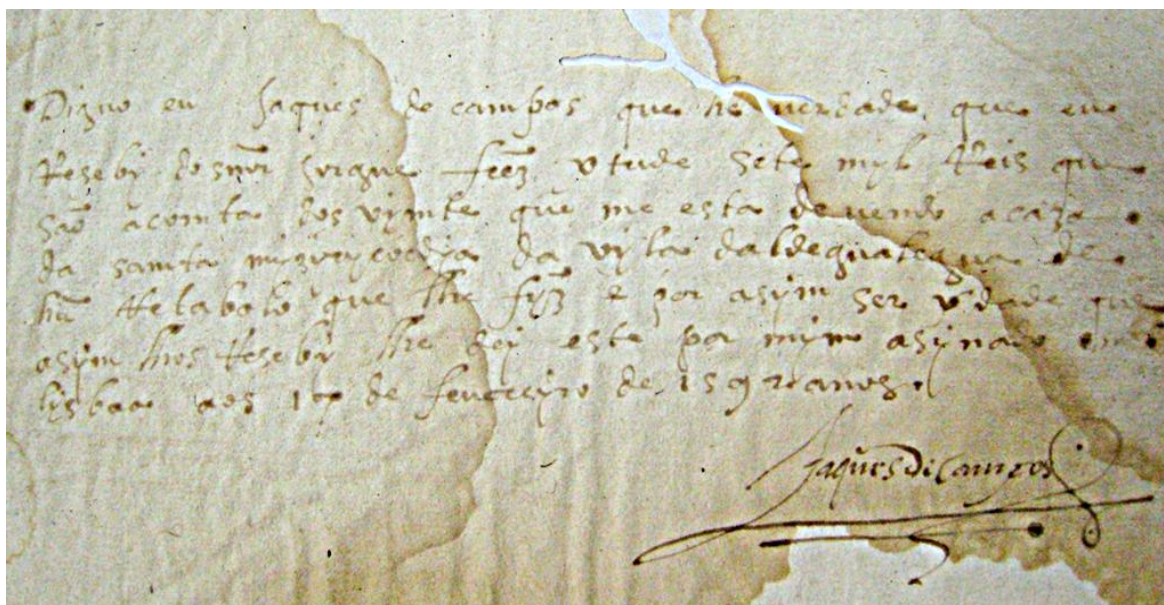 Diguo eu Jaques de campos que he verdade que eu
Reseby do snnor Jorgue frz vtude sete myl Reis que
são a comta dos vymte que me esta devendo a caza
da samta mizyrycordya da vyla daldegualegua de
hũ Retabolo que lhe fyz e por asym ser vdade que
asym hos Reseby lhe dey este por mym asynado em
lysboa aos de fevereyro de anos
Jaques de Campos